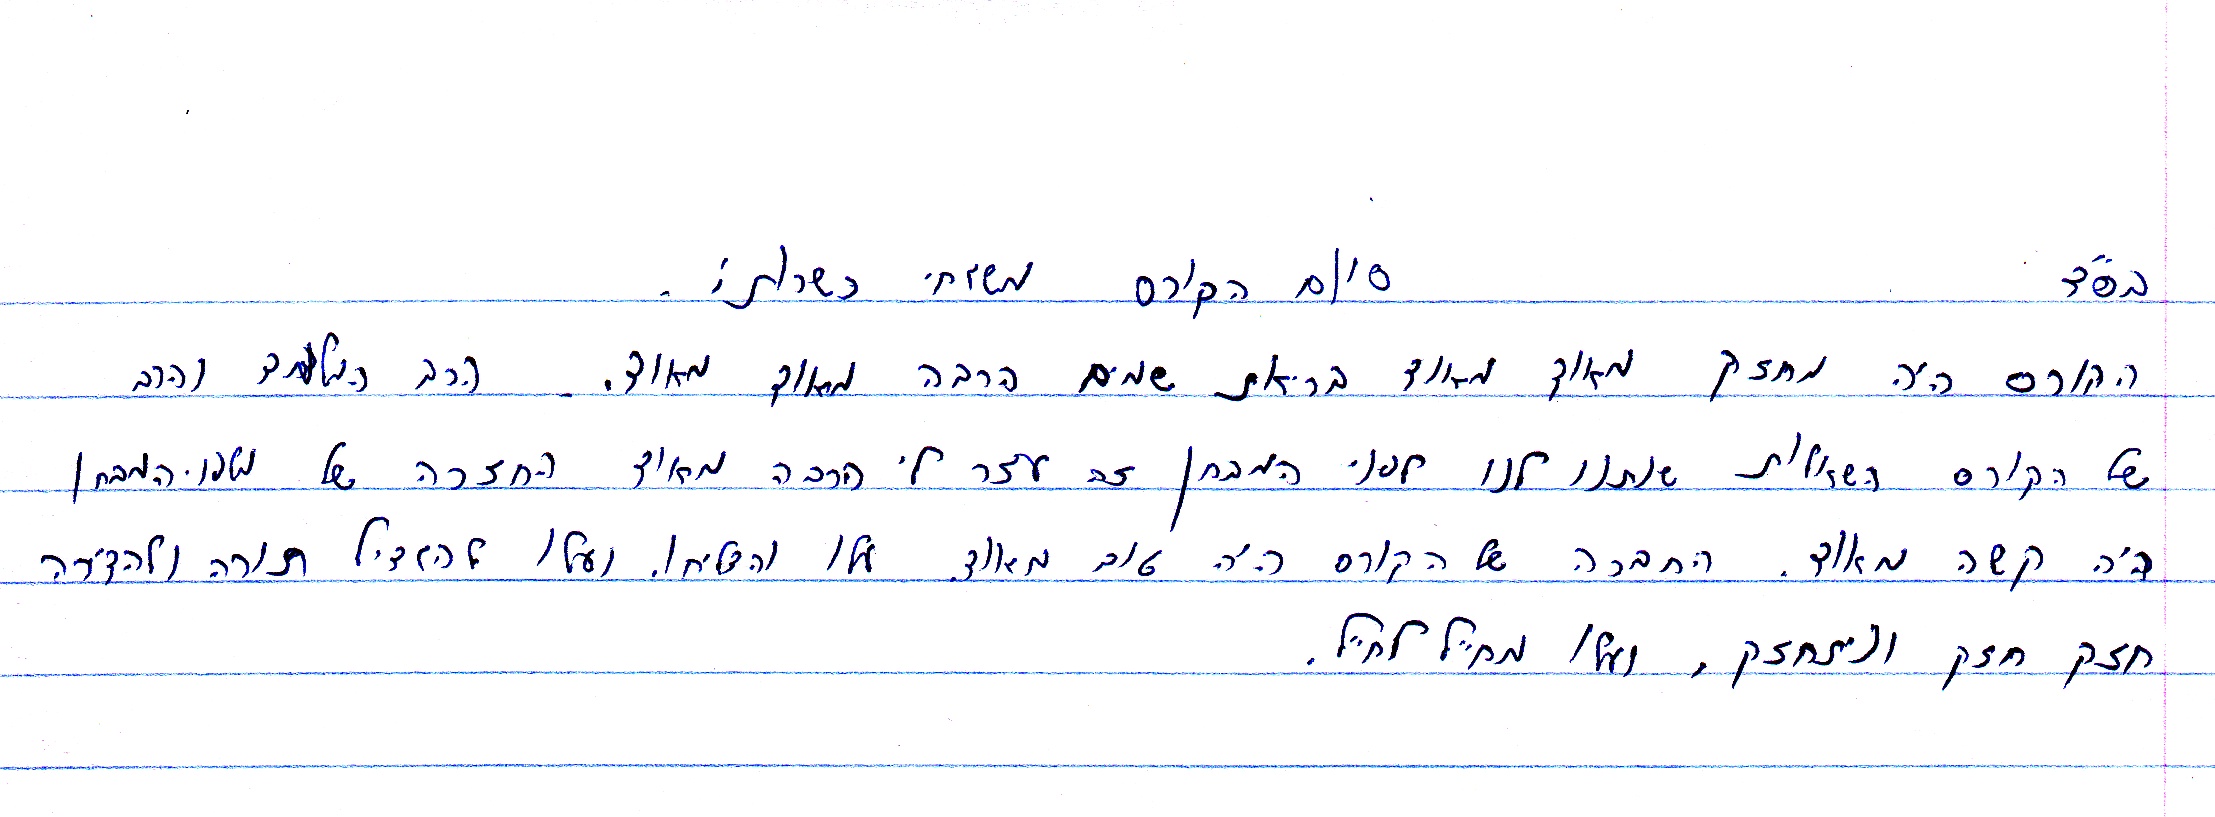 בס"ד סיום הקורס משגחי כשרות:
הקורס היה מחזק מאוד מאוד ביראת שמים הרבה מאוד מאוד. הרב המלמד והרב
של הקורס השאלות שנתנו לנו לפני המבחן זה עזר לי הרבה מאוד החזרה של לפני המבחן
היה קשה מאוד. החברה של הקורס היה טוב מאוד. עלו והצליחו. ועלו להגדיל תורה ולהדירה
חזק חזק ונתחזק, ועלו מחיל לחיל.